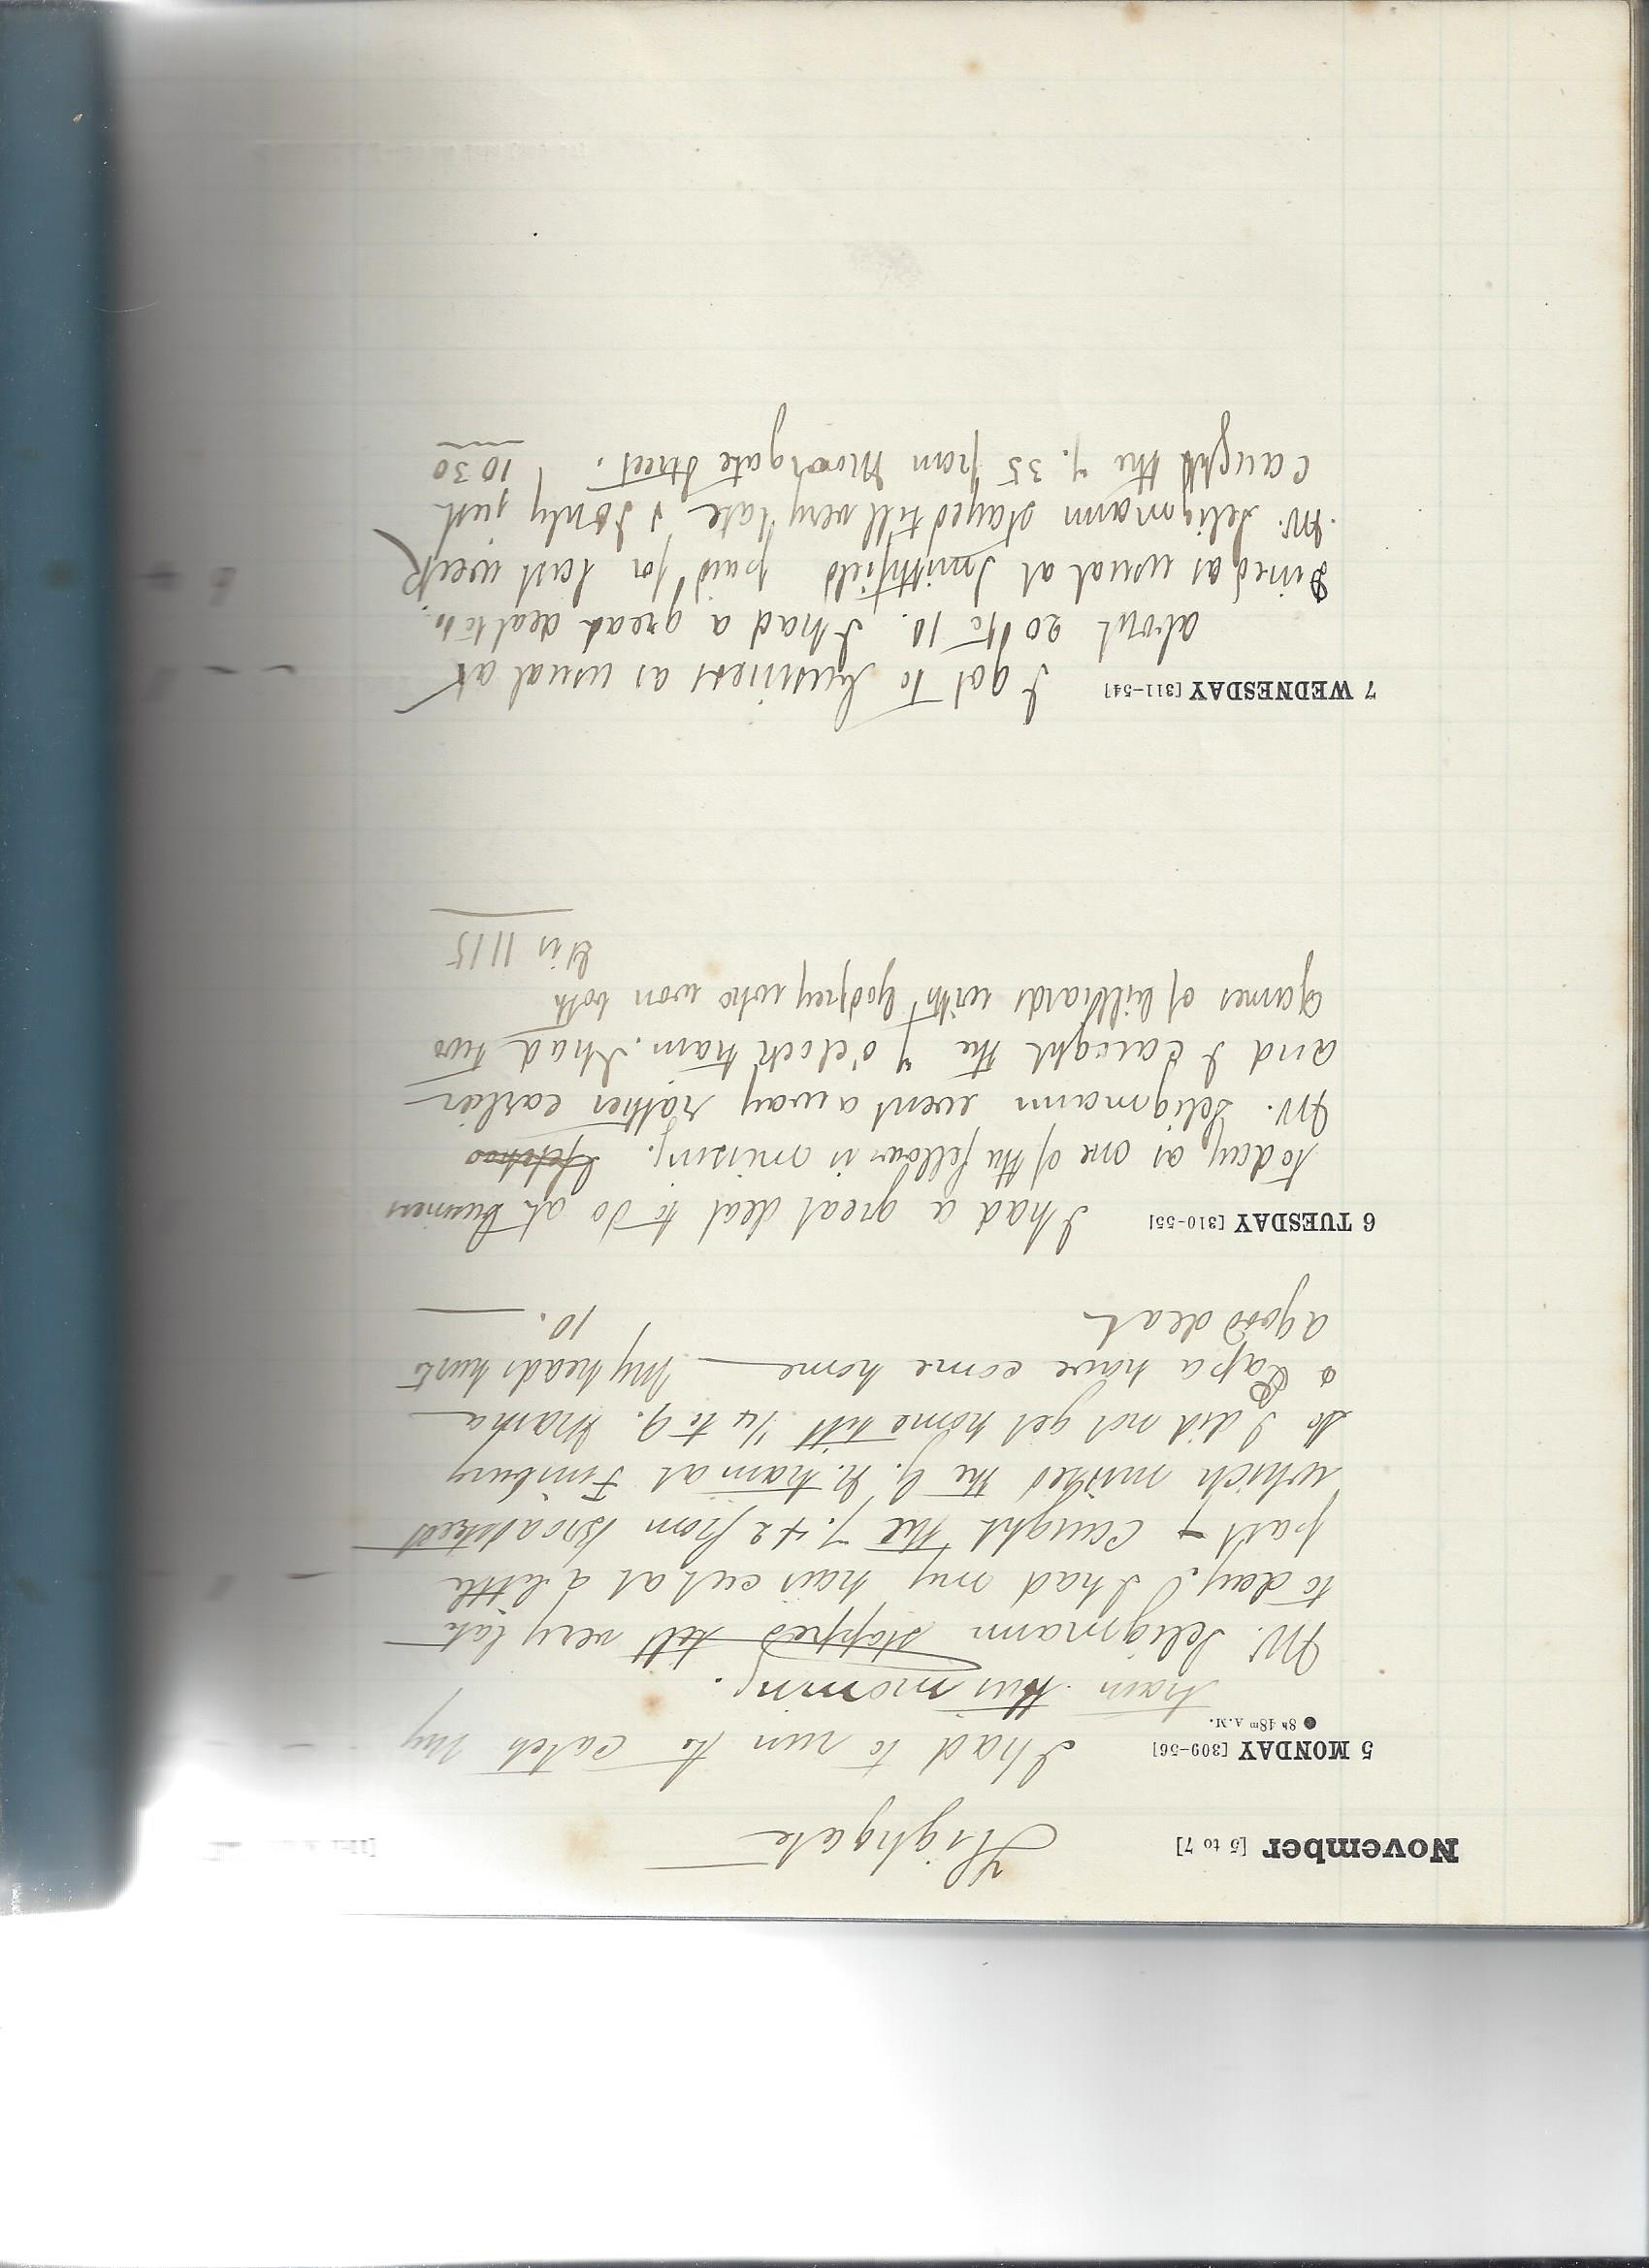 November [5 to 7] Highgate
5 MONDAY [309-56] I had to run to catch my
● 8h 48m A.M. train this morning.
Mr. Seligmann stopped till very late
to day. I had my hair cut at a little
past 7 Caught the 7.42 from Broad street
which missed the G. N. train at Finsbury
so I did not get home till 1/4 to 9. Mama
& Papa have come home — My heads hurts
a good deal 10.
6 TUESDAY [310-55] I had a great deal to do at business
to day, as one of the fellows is missing.
Mr. Seligmann went away rather earlier
and I caught the 7 o'clock train. I had two
games of billiards with Godfrey who won both
It is 11 15
7 WEDNESDAY [311-54] I got to business as usual at
about 20 to 10. I had a great deal to do.
Dined as usual at Smithfield paid for last week
Mr. Seligmann stayed till very late & I only just
caught the 7.35 from Moorgate Street. 10 30